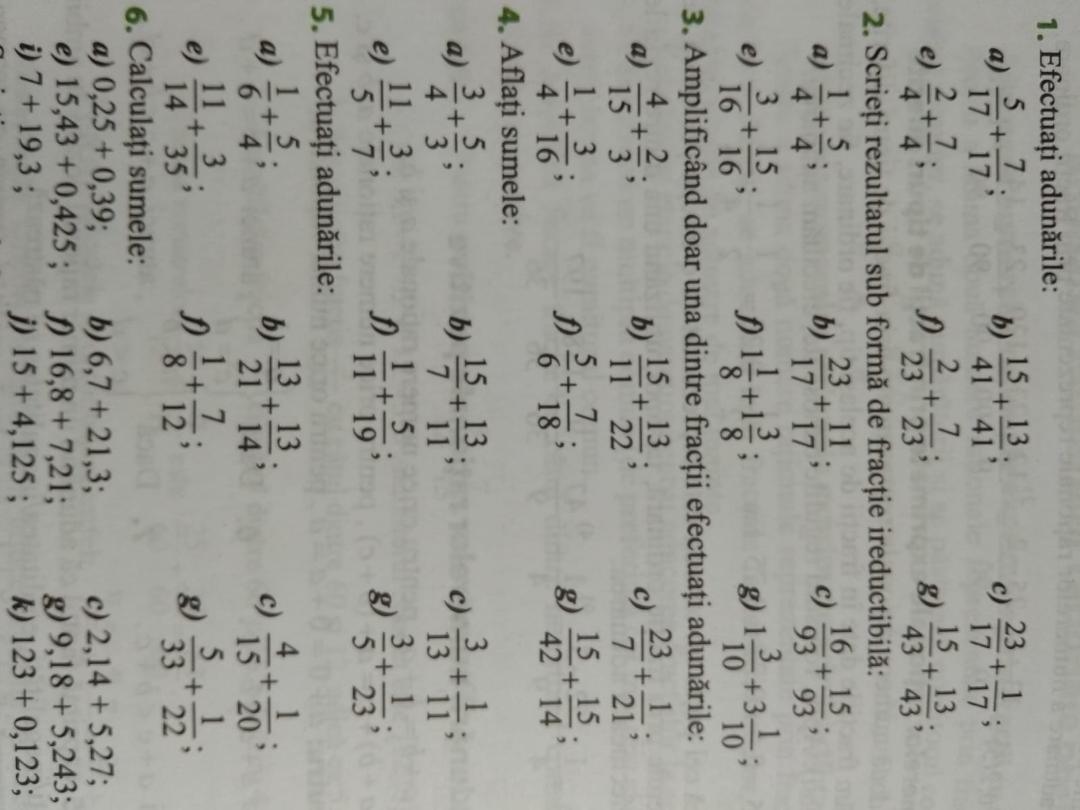 1. Efectuați adunările:
a) 5/17 + 7/17; b) 15/41 + 13/41; c) 23/17 + 1/17;
e) 2/4 + 7/4; f) 2/23 + 7/23; g) 15/43 + 13/43;
2. Scrieți rezultatul sub formă de fracție ireductibilă:
a) 1/4 + 5/4; b) 23/17 + 11/17; c) 16/93 + 15/93;
e) 3/16 + 15/16; f) 1 1/8 + 1 3/8; g) 1 3/10 + 3 1/10;
3. Amplificând doar una dintre fracții efectuați adunările:
a) 4/15 + 2/3; b) 15/11 + 13/22; c) 23/7 + 1/21;
e) 1/4 + 3/16; f) 5/6 + 7/18; g) 15/42 + 15/14;
4. Aflați sumele:
a) 3/4 + 5/3; b) 15/7 + 13/11; c) 3/13 + 1/11;
e) 11/5 + 3/7; f) 1/11 + 5/19; g) 3/5 + 1/23;
5. Efectuați adunările:
a) 1/6 + 5/4; b) 13/21 + 13/14; c) 4/15 + 1/20;
e) 11/14 + 3/35; f) 1/8 + 7/12; g) 5/33 + 1/22;
6. Calculați sumele:
a) 0,25 + 0,39; b) 6,7 + 21,3; c) 2,14 + 5,27;
e) 15,43 + 0,425; f) 16,8 + 7,21; g) 9,18 + 5,243;
i) 7 + 19,3; j) 15 + 4,125; k) 123 + 0,123;